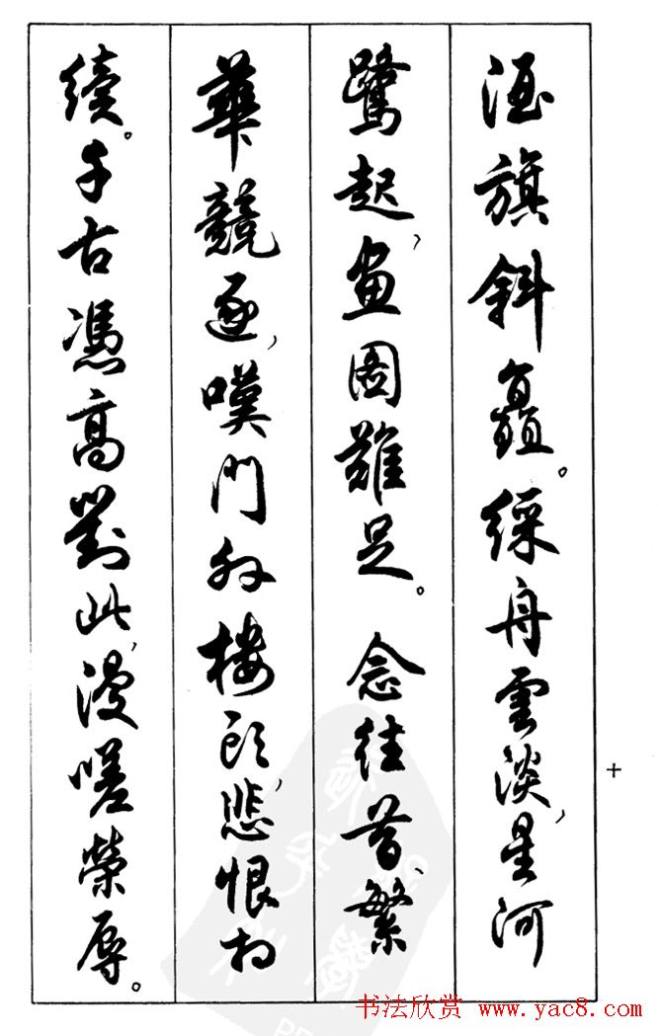 酒旗斜矗。綵舟雲淡，星河
鷺起，畫圖難足。念往昔繁
華競逐，嘆門外樓頭，悲恨相
續。千古憑高對此，漫嗟榮辱。
书法欣赏 www.yac8.com